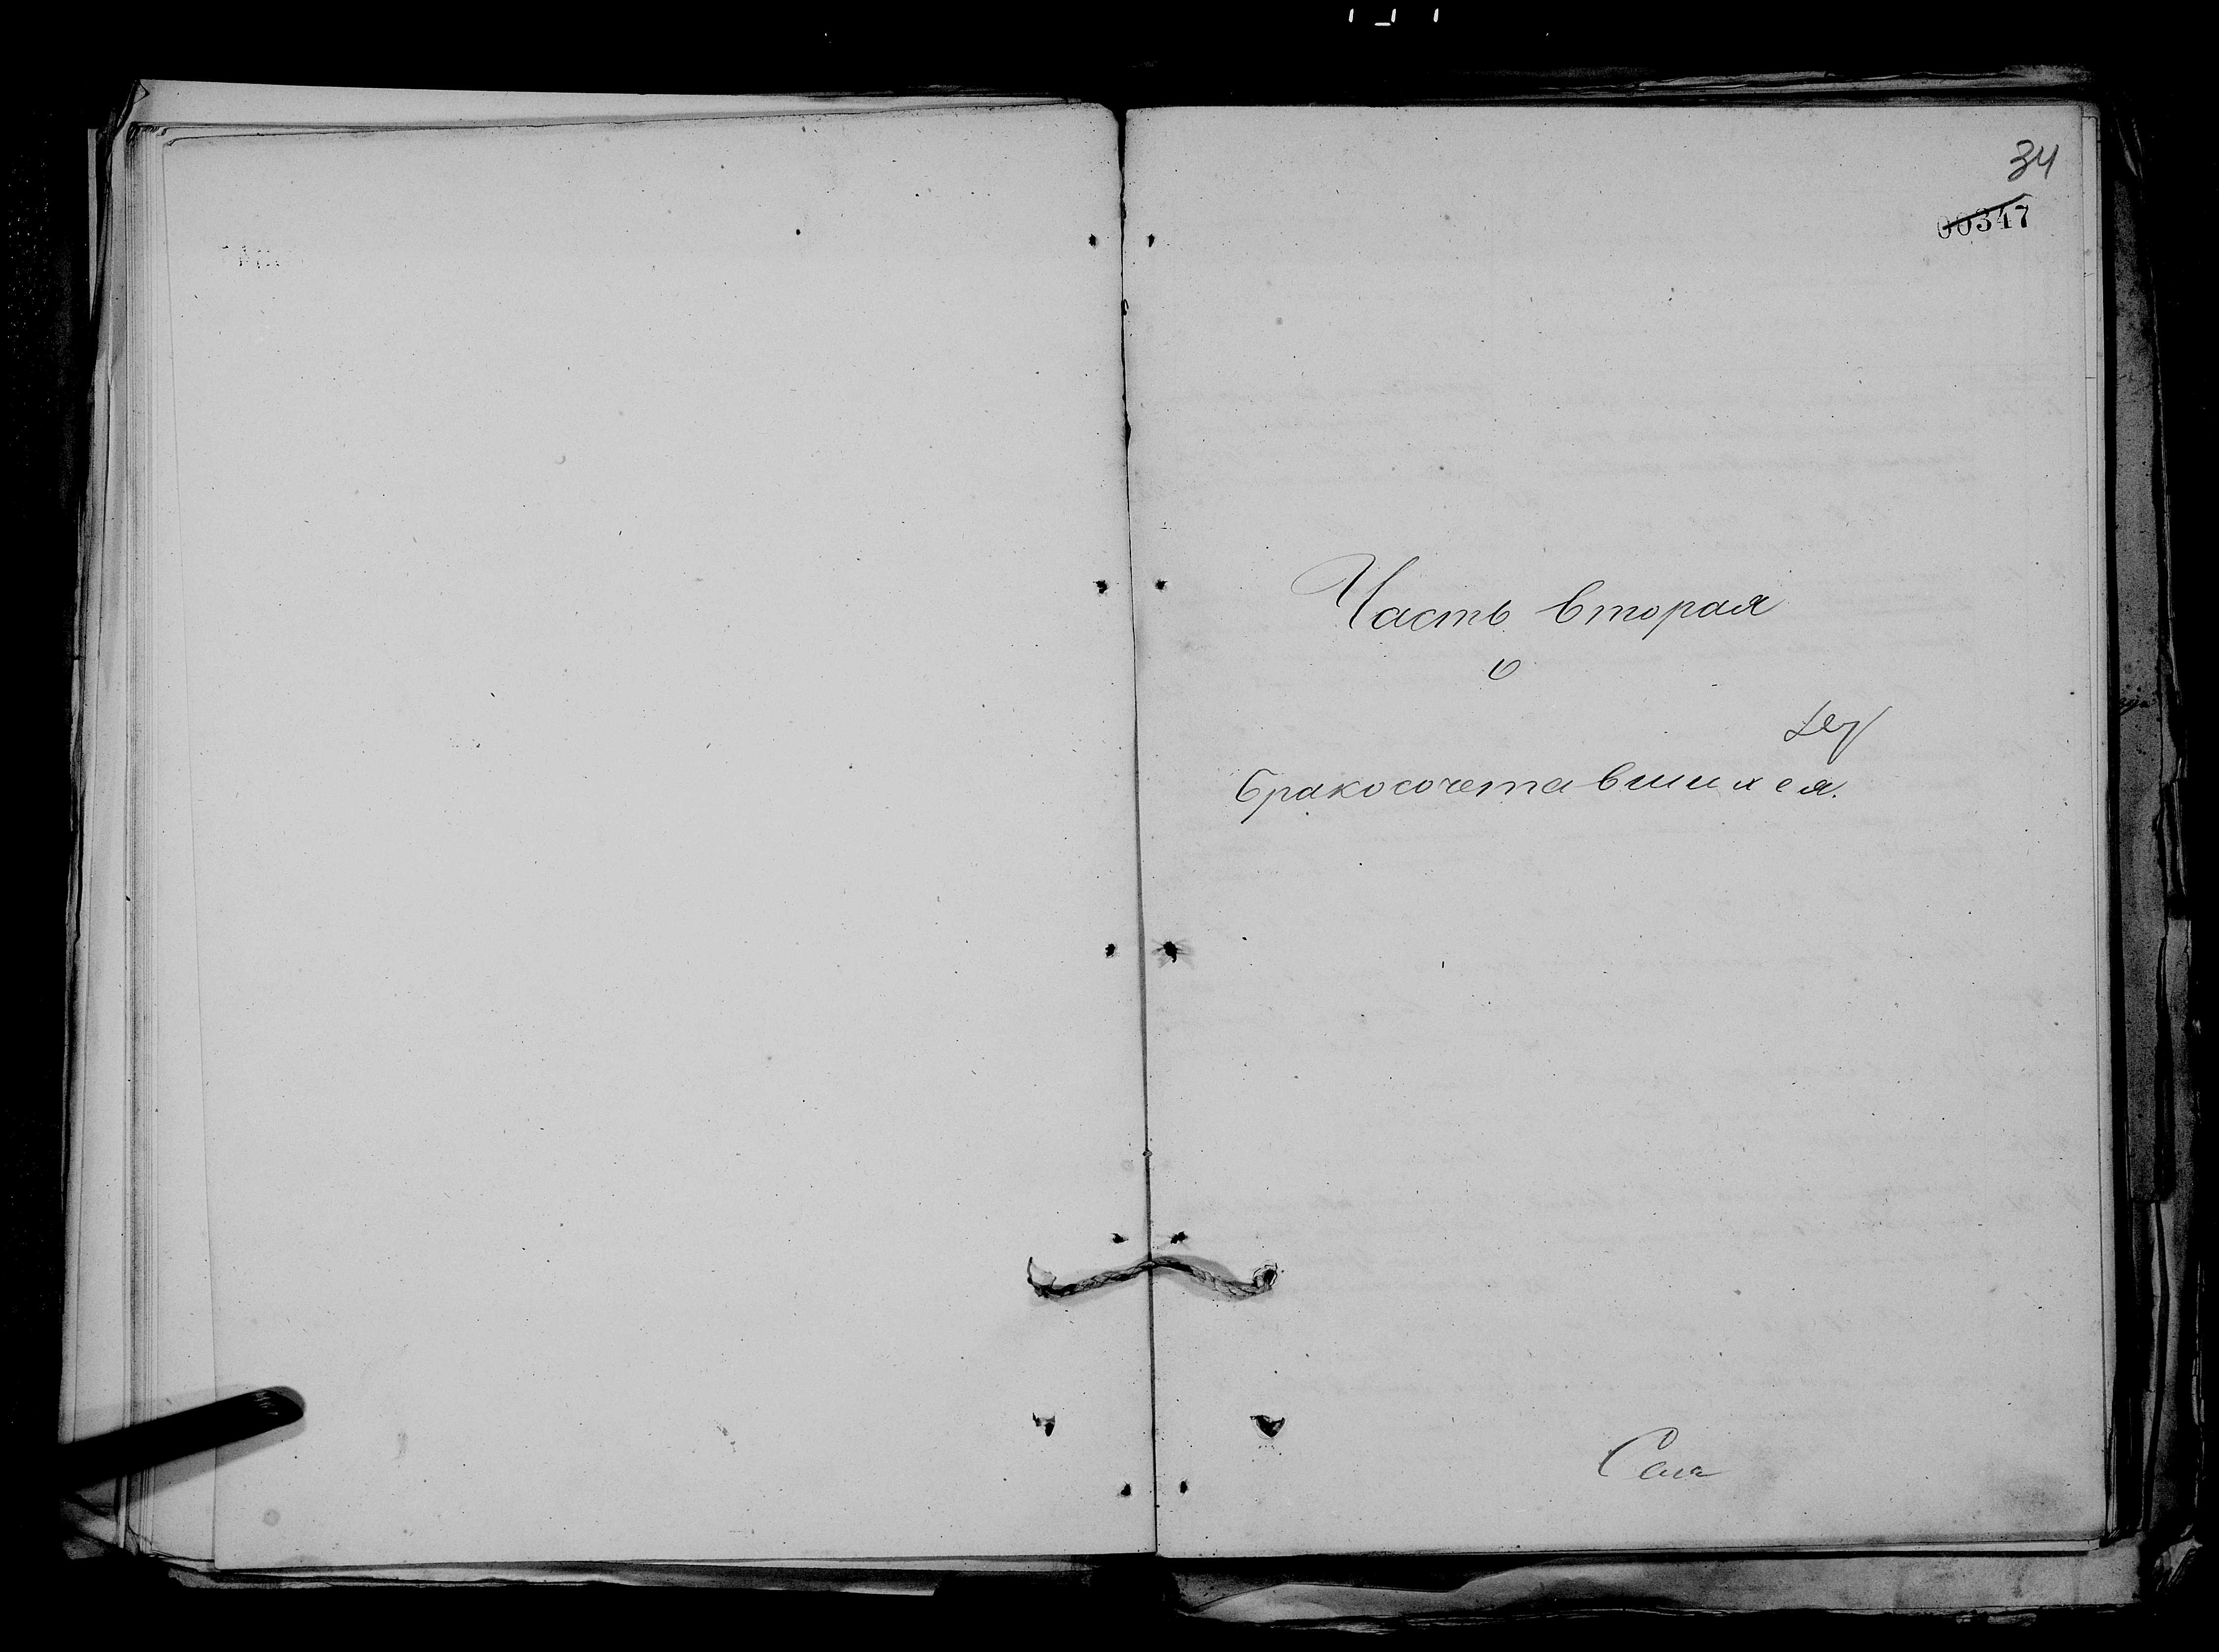 34
00347
Часть вторая
о
бракосочетавшихся.